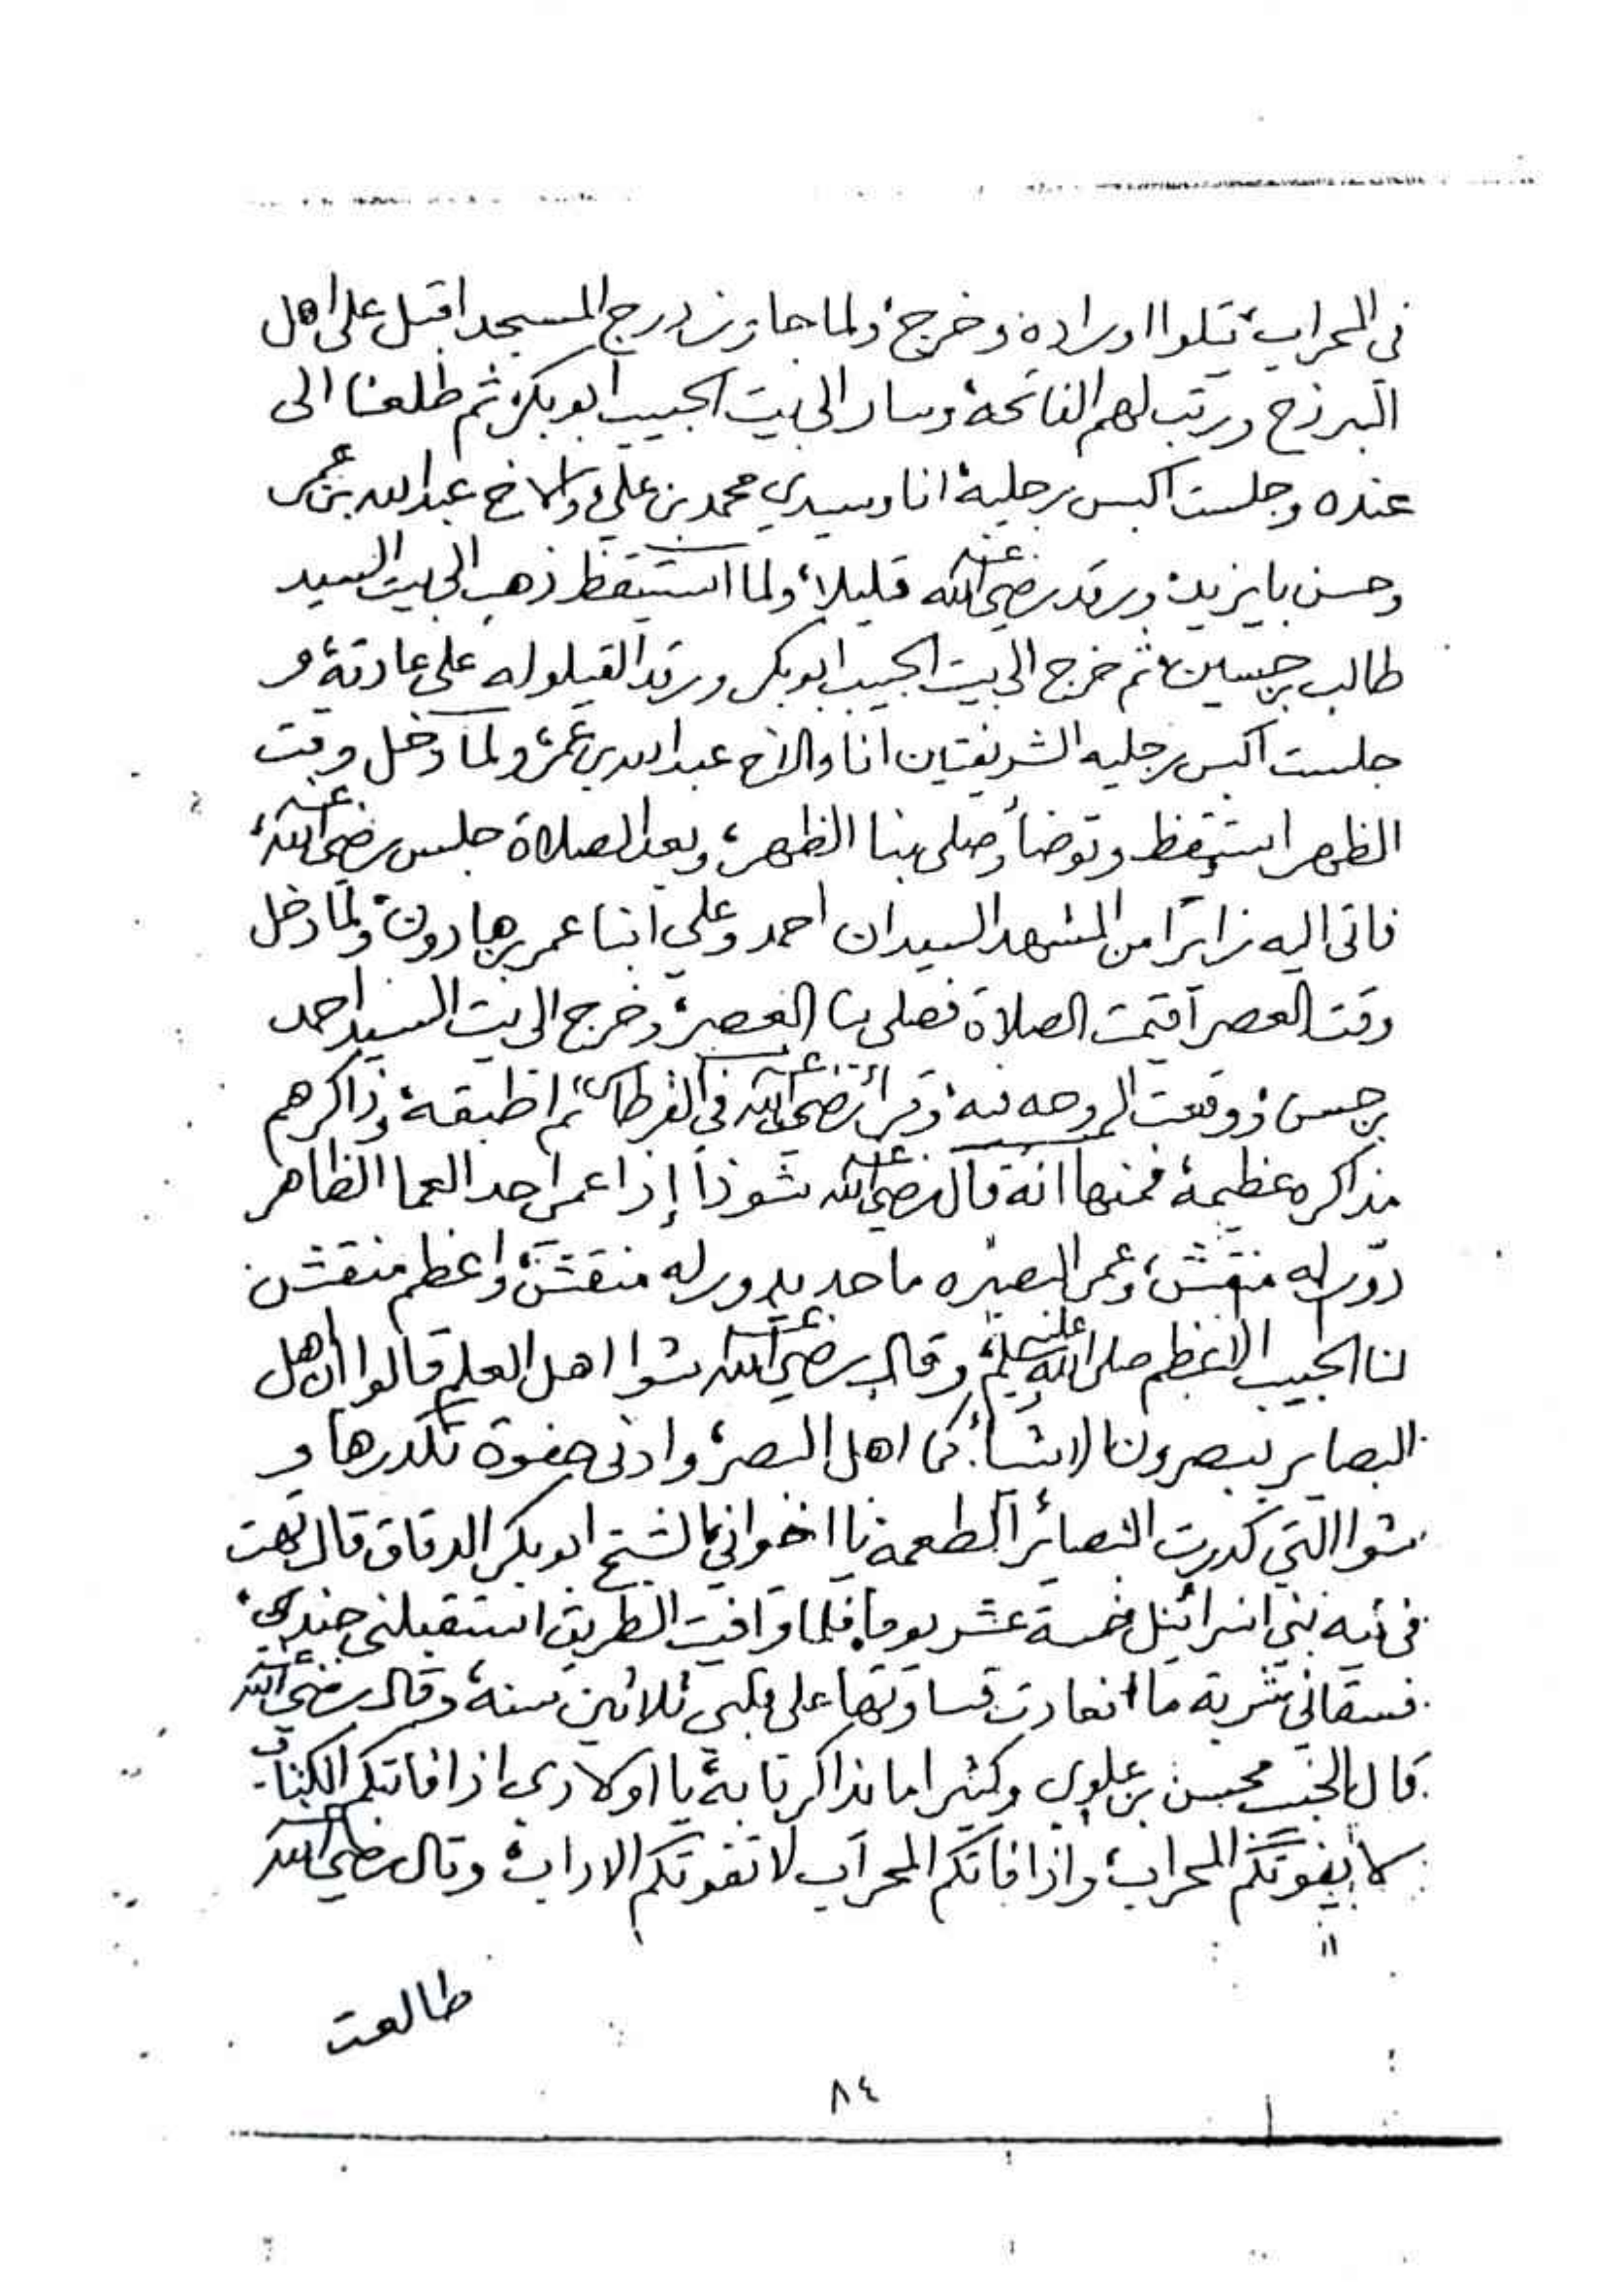 في المحراب، يتلوا اوراده وخرج، ولما جاوز درج المسجد اقبل على اهل
البرزخ ورتب لهم الفاتحة وسار الى بيت الحبيب ابو بكر، ثم طلعنا الى
عنده وجلست اكبس رجليه انا وسيدي محمد بن علي والاخ عبدالله بن عمر
وحسن بايزيد، ورقد رضي الله عنه قليلا، ولما استيقظ ذهب الى بيت السيد
طالب بن حسين، ثم خرج الى بيت الحبيب ابو بكر ورقد القيلوله على عادته، و
جلست اكبس رجليه الشريفتين انا والاخ عبدالله بن عمر، ولما دخل وقت
الظهر استيقظ وتوضأ وصلى بنا الظهر، وبعد الصلاة جلس رضي الله عنه،
فاتى اليه زائرا من المشهد السيدان احمد وعلي ابنا عمر بن هارون، ولما دخل
وقت العصر أقيمت الصلاة فصلى بنا العصر، وخرج الى بيت السيد احمد
بن حسن ووقعت الروحه فيه، وقرأ رضي الله عنه في القرطاس ثم اطبقه، وذاكرهم
مذاكره عظيمة فمنها انه قال رضي الله عنه شوذا إذا عمر احد العما الظاهر
دور له منقش، وعمى البصيره ما حد يدور له منقش، واعظم منقش
لنا الحبيب الاعظم صلى الله عليه وسلم، وقال رضي الله عنه شوا اهل العلم قالوا ان اهل
البصاير يبصرون الاشيأ كما اهل البصر، وادنى جفوة تكدرها و
شوا التي كدرت البصائر الطعمة يا اخواني، الشيخ ابو بكر الدقاق قال تهت
في تيه بني اسرائيل خمسة عشر يوما، فلما وافيت الطريق استقبلني جندي،
فسقاني شربة ما، فعادت قساوتها على قلبي ثلاثين سنة، وقال رضي الله عنه
قال الحبيب محسن بن علوي وكثيرا ما نذاكرنا به، يا اولادي اذا فاتكم الكتاب
لا يفوتكم المحراب، واذا فاتكم المحراب لا تفوتكم الاداب، وقال رضي الله
طالعت
٨٤